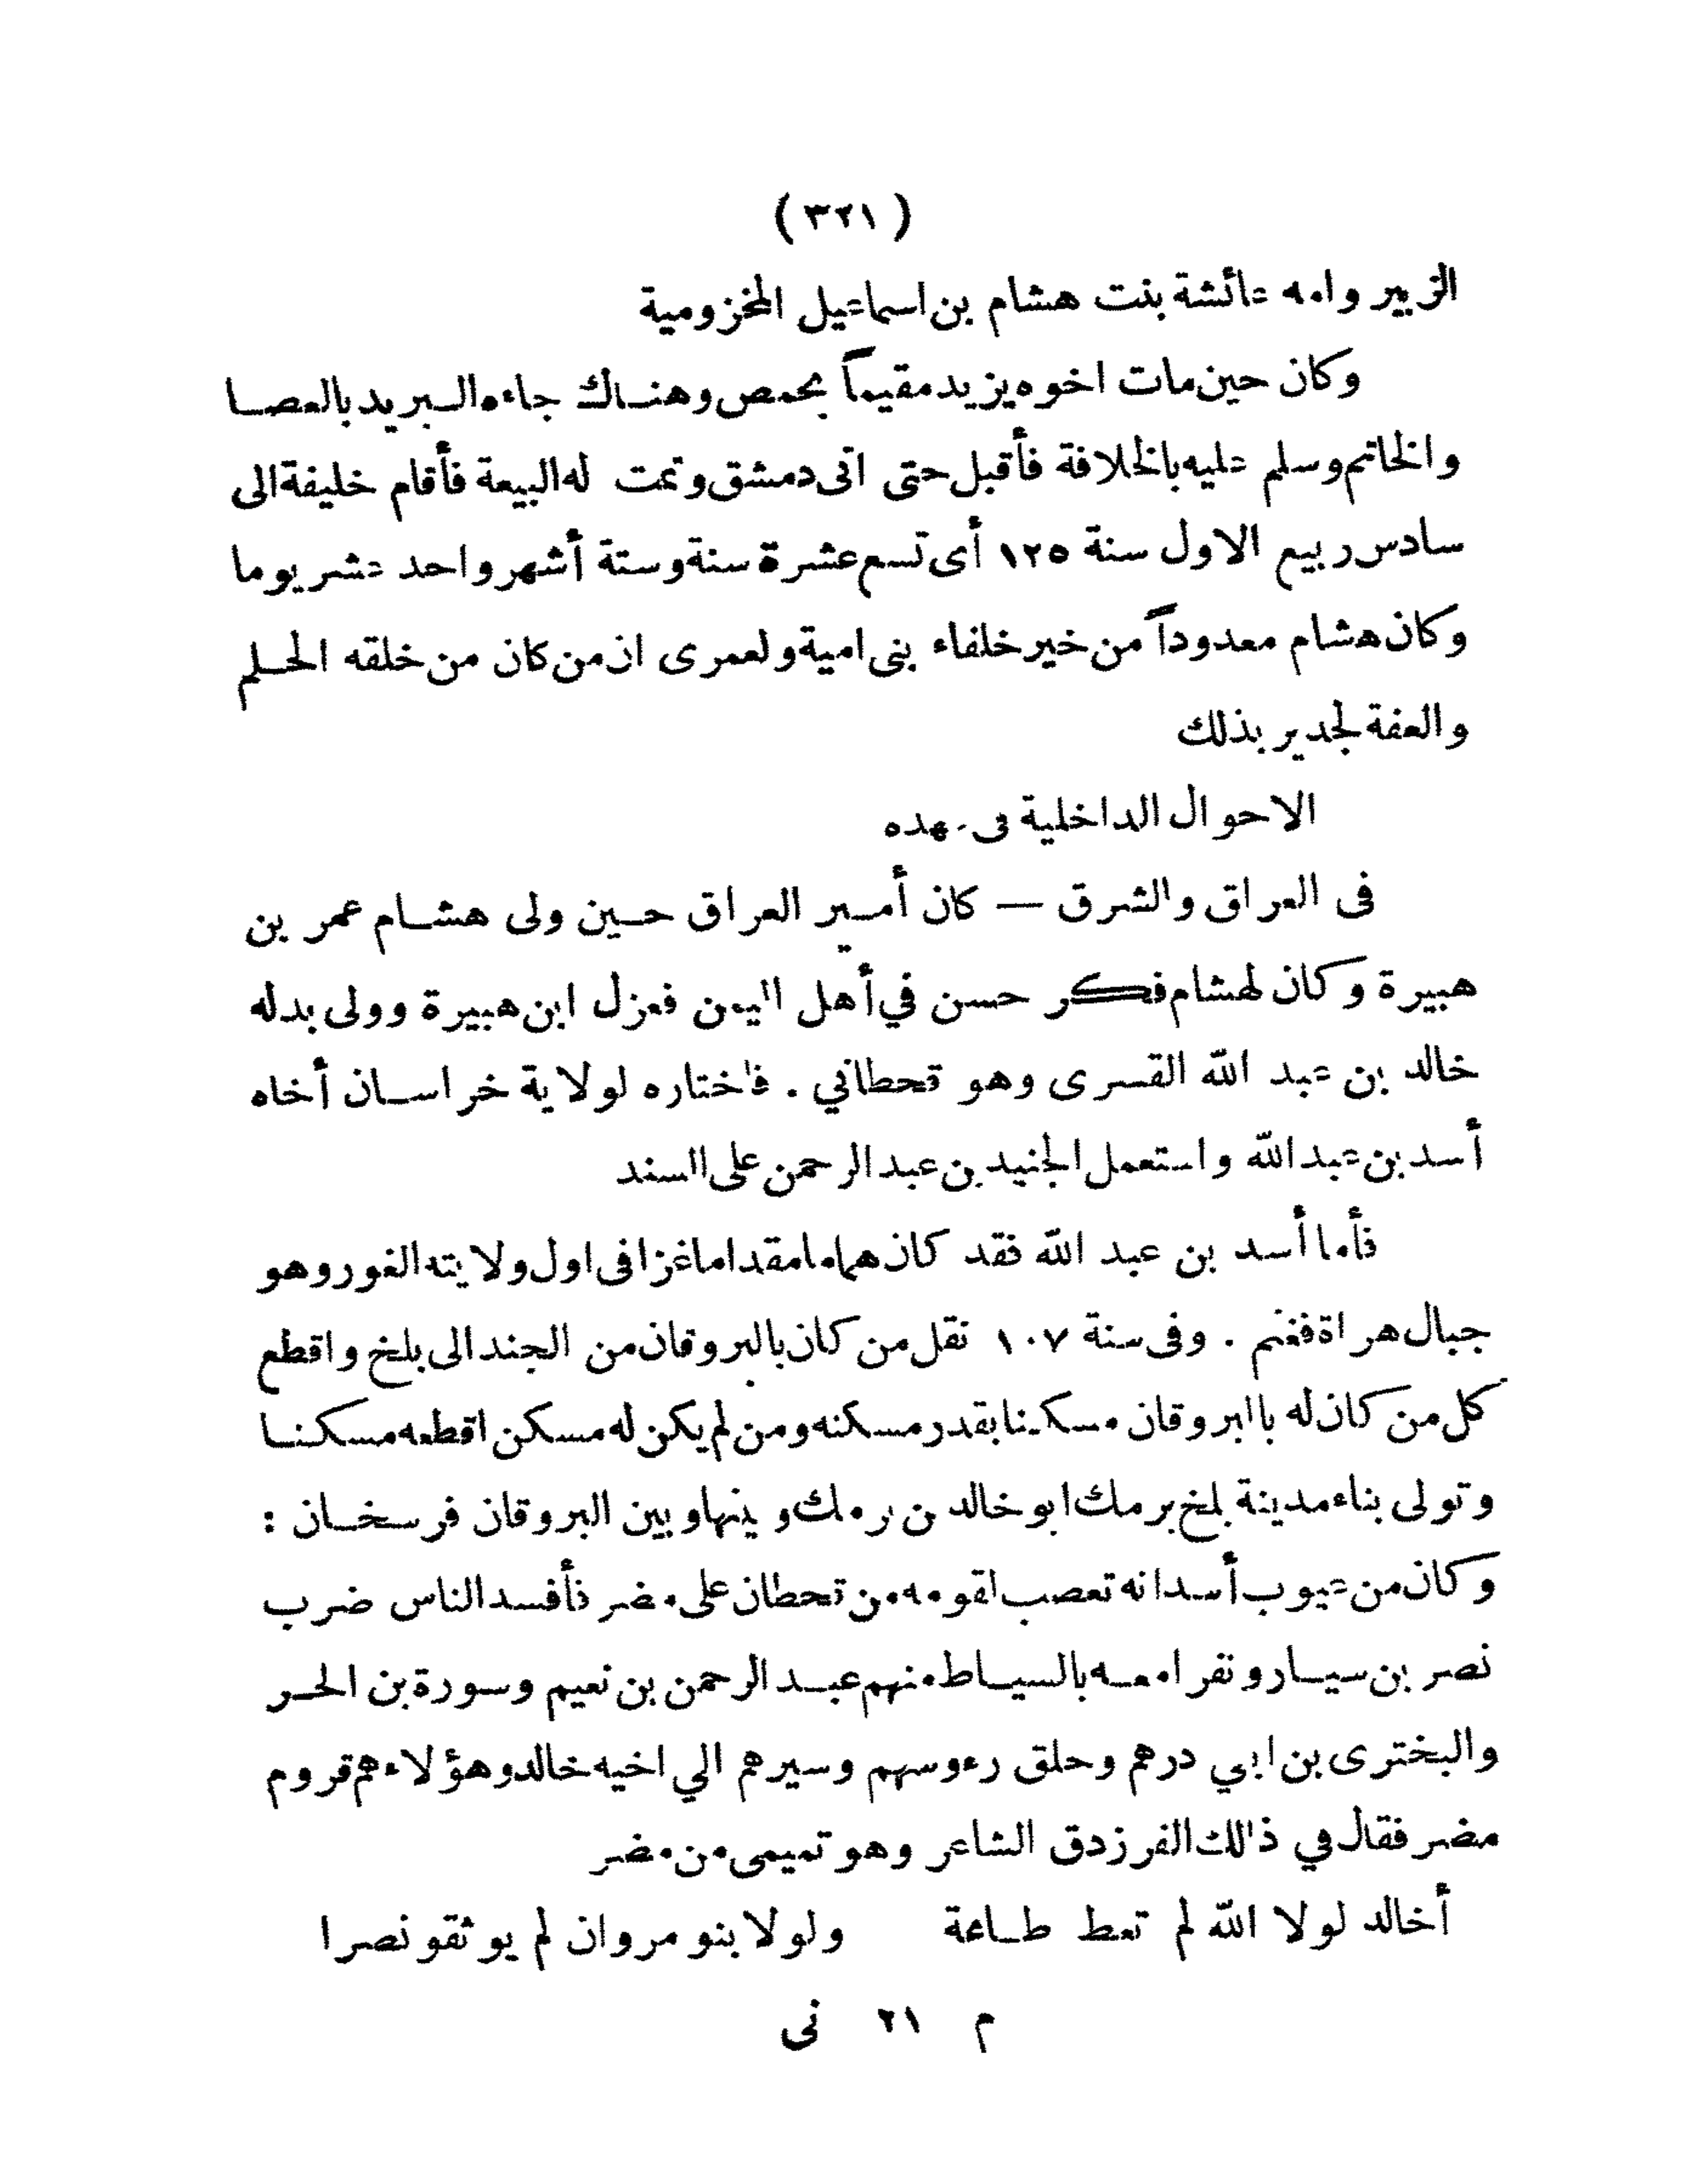 ( ٣٢١ )
الزبير وامه عائشة بنت هشام بن اسماعيل المخزومية
وكان حين مات اخوه يزيد مقيماً بحمص وهناك جاءه البريد بالعصا
والخاتم وسلم عليه بالخلافة فأقبل حتى اتى دمشق وتمت له البيعة فأقام خليفة الى
سادس ربيع الاول سنة ١٢٥ أى تسع عشرة سنة وستة أشهر واحد عشر يوما
وكان هشام معدوداً من خير خلفاء بنى امية ولعمرى ان من كان من خلقه الحلم
والعفة لجدير بذلك
الاحوال الداخلية فى عهده
فى العراق والشرق — كان أمير العراق حين ولى هشام عمر بن
هبيرة وكان لهشام فكر حسن في أهل اليمن فعزل ابن هبيرة وولى بدله
خالد بن عبد الله القسرى وهو قحطاني . فاختاره لولاية خراسان أخاه
أسد بن عبد الله واستعمل الجنيد بن عبد الرحمن على السند
فأما أسد بن عبد الله فقد كان هماما مقداما غزا فى اول ولايته الغور وهو
جبال هراة فغنم . وفى سنة ١٠٧ نقل من كان بالبروقان من الجند الى بلخ واقطع
كل من كان له بالبروقان مسكينا بقدر مسكنه ومن لم يكن له مسكن اقطعه مسكنا
وتولى بناء مدينة بلخ برمك ابو خالد بن برمك وبينها وبين البروقان فرسخان :
وكان من عيوب أسد انه تعصب لقومه من قحطان على مضر فأفسد الناس ضرب
نصر بن سيار ونفرا معه بالسياط منهم عبد الرحمن بن نعيم وسورة بن الحر
والبخترى بن ابي درهم وحلق رءوسهم وسيرهم الي اخيه خالد وهؤلاء هم قروم
مضر فقال في ذالك الفرزدق الشاعر وهو تميمى من مضر
أخالد لولا الله لم تعط طاعة ولولا بنو مروان لم يوثقو نصرا
م ٢١ نى